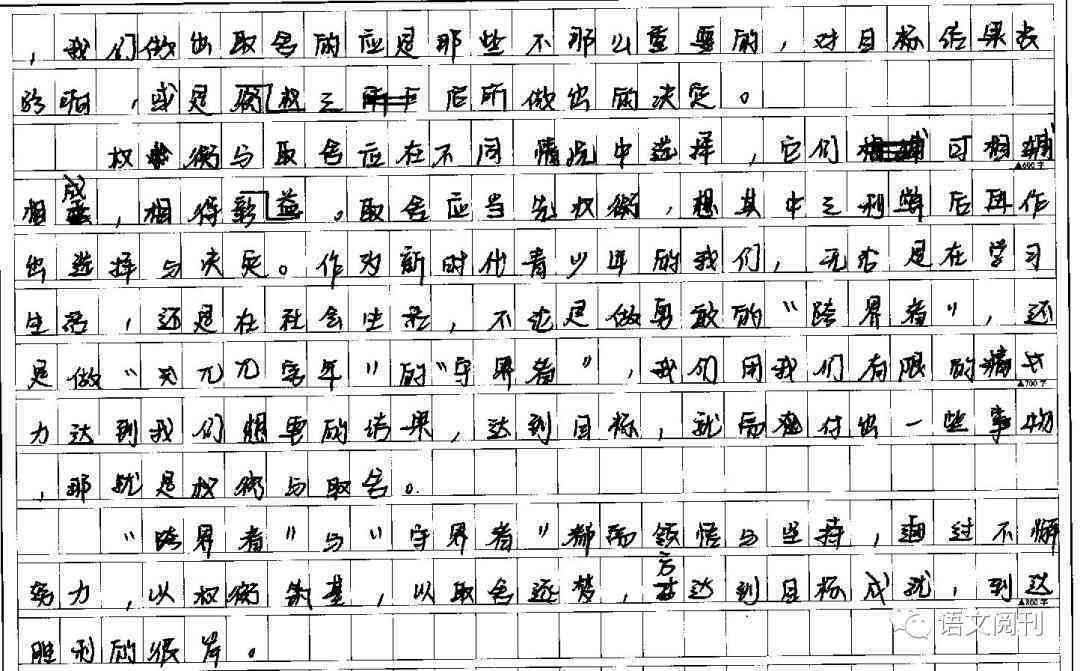 ，我们做出取舍的应是那些不那么重要的，对目标结果无
影响，或是权之后所做出的决定。
权衡与取舍应在不同情况中选择，它们可相辅
▲600字
相成，相得彰益。取舍应当先权衡，想其中之利弊后再作
出选择与决定。作为新时代青少年的我们，无论是在学习
生活，还是在社会生活，不论是做勇敢的“跨界者”，还
是做“兀兀穷年”的“守界者”，我们用我们有限的精
▲700字
力达到我们想要的结果，达到目标，就需付出一些事物
，那就是权衡与取舍。
“跨界者”与“守界者”都需领悟与坚持，通过不懈
努力，以权衡筑基，以取舍逐梦，方达到目标成就，到达
▲800字
胜利的彼岸。
语文阅刊